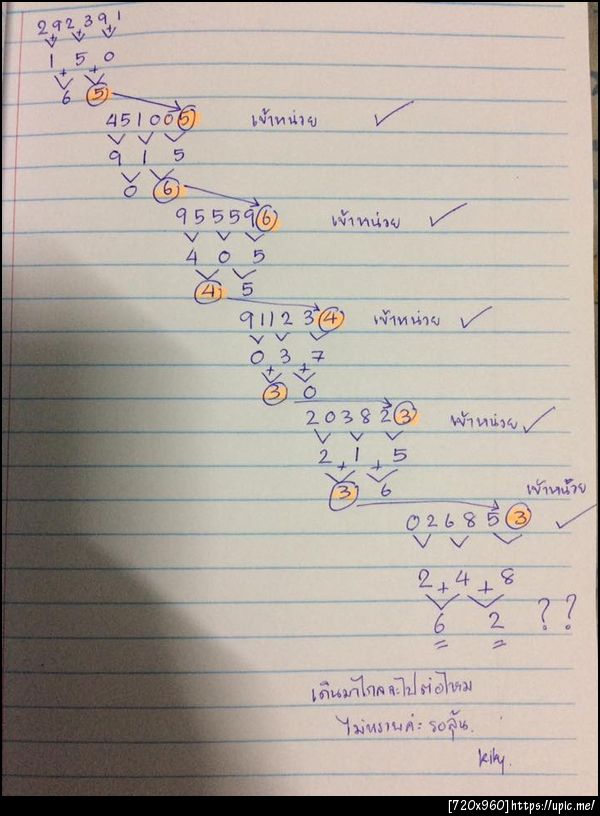 292391
1 + 5 + 0
6 5
451005 เข้าหน่วย ✓
9 1 5
0 6
955596 เข้าหน่วย ✓
4 0 5
4 5
911234 เข้าหน่วย ✓
0 3 7
+ +
3 0
203823 เข้าหน่วย ✓
2 + 1 + 5
3 6
เข้าหน่วย
026853 ✓
2 + 4 + 8
6 2 ??
เดินมาไกลจะไปต่อไหม
ไม่ทราบค่ะ รอลุ้น.
kiky.
[720x960]https://upic.me/